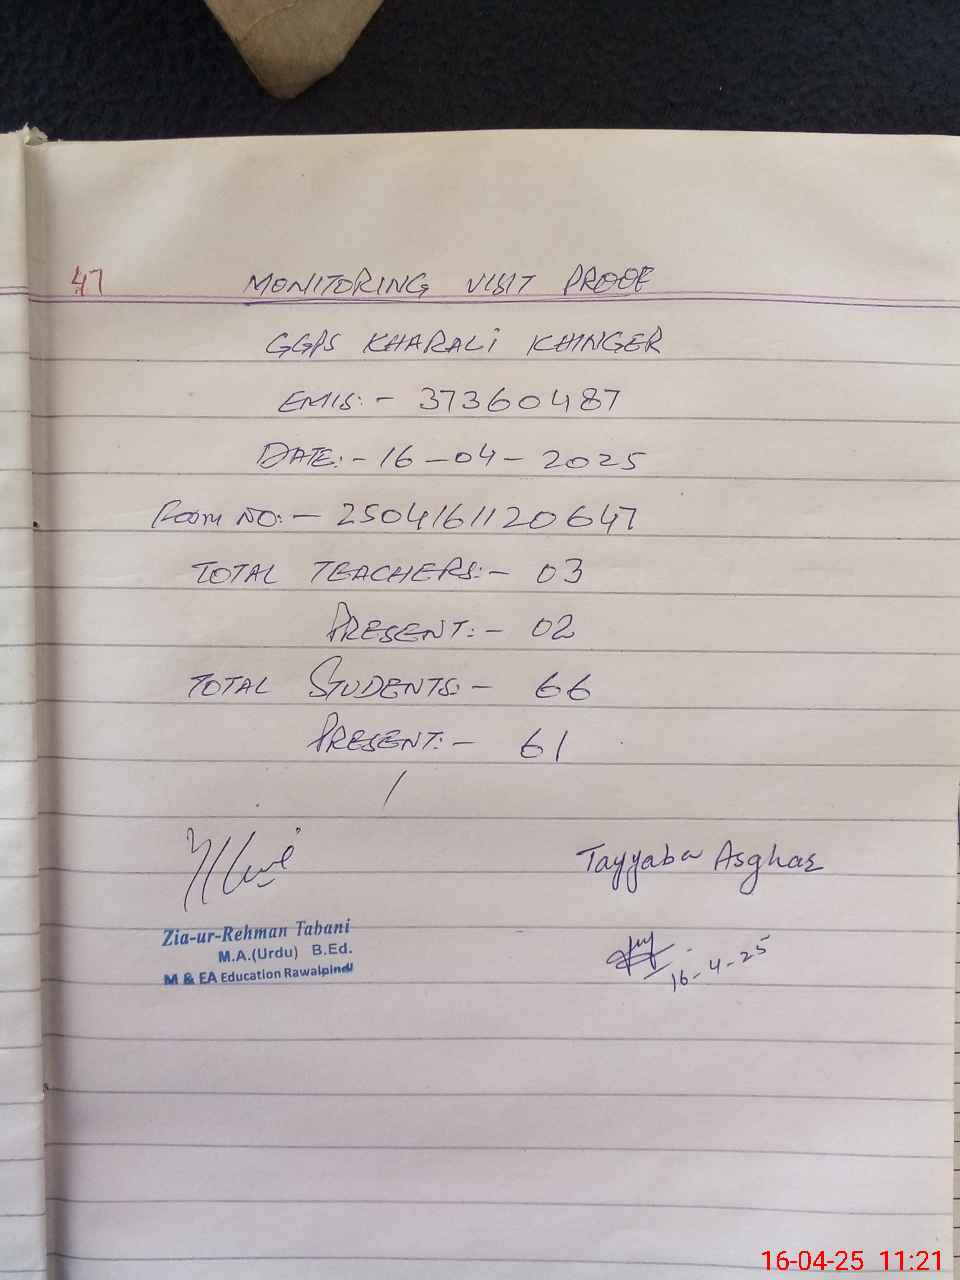 47
MONITORING VISIT PROOF
GGPS KHARALI KHINGER
EMIS:- 37360487
DATE:- 16-04-2025
FOOM NO:- 2504161120647
TOTAL TEACHERS:- 03
PRESENT:- 02
TOTAL STUDENTS:- 66
PRESENT:- 61
Tayyaba Asghar
Zia-ur-Rehman Tabani
M.A.(Urdu) B.Ed.
M & EA Education Rawalpindi
16-4-25
16-04-25 11:21